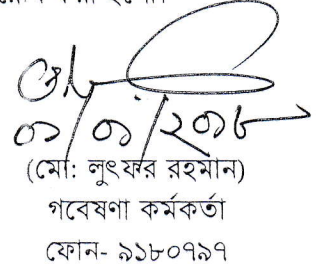 ০১/০১/২০১৮
(মো: লুৎফর রহমান)
গবেষণা কর্মকর্তা
ফোন- ৯১৮০৭৯৭